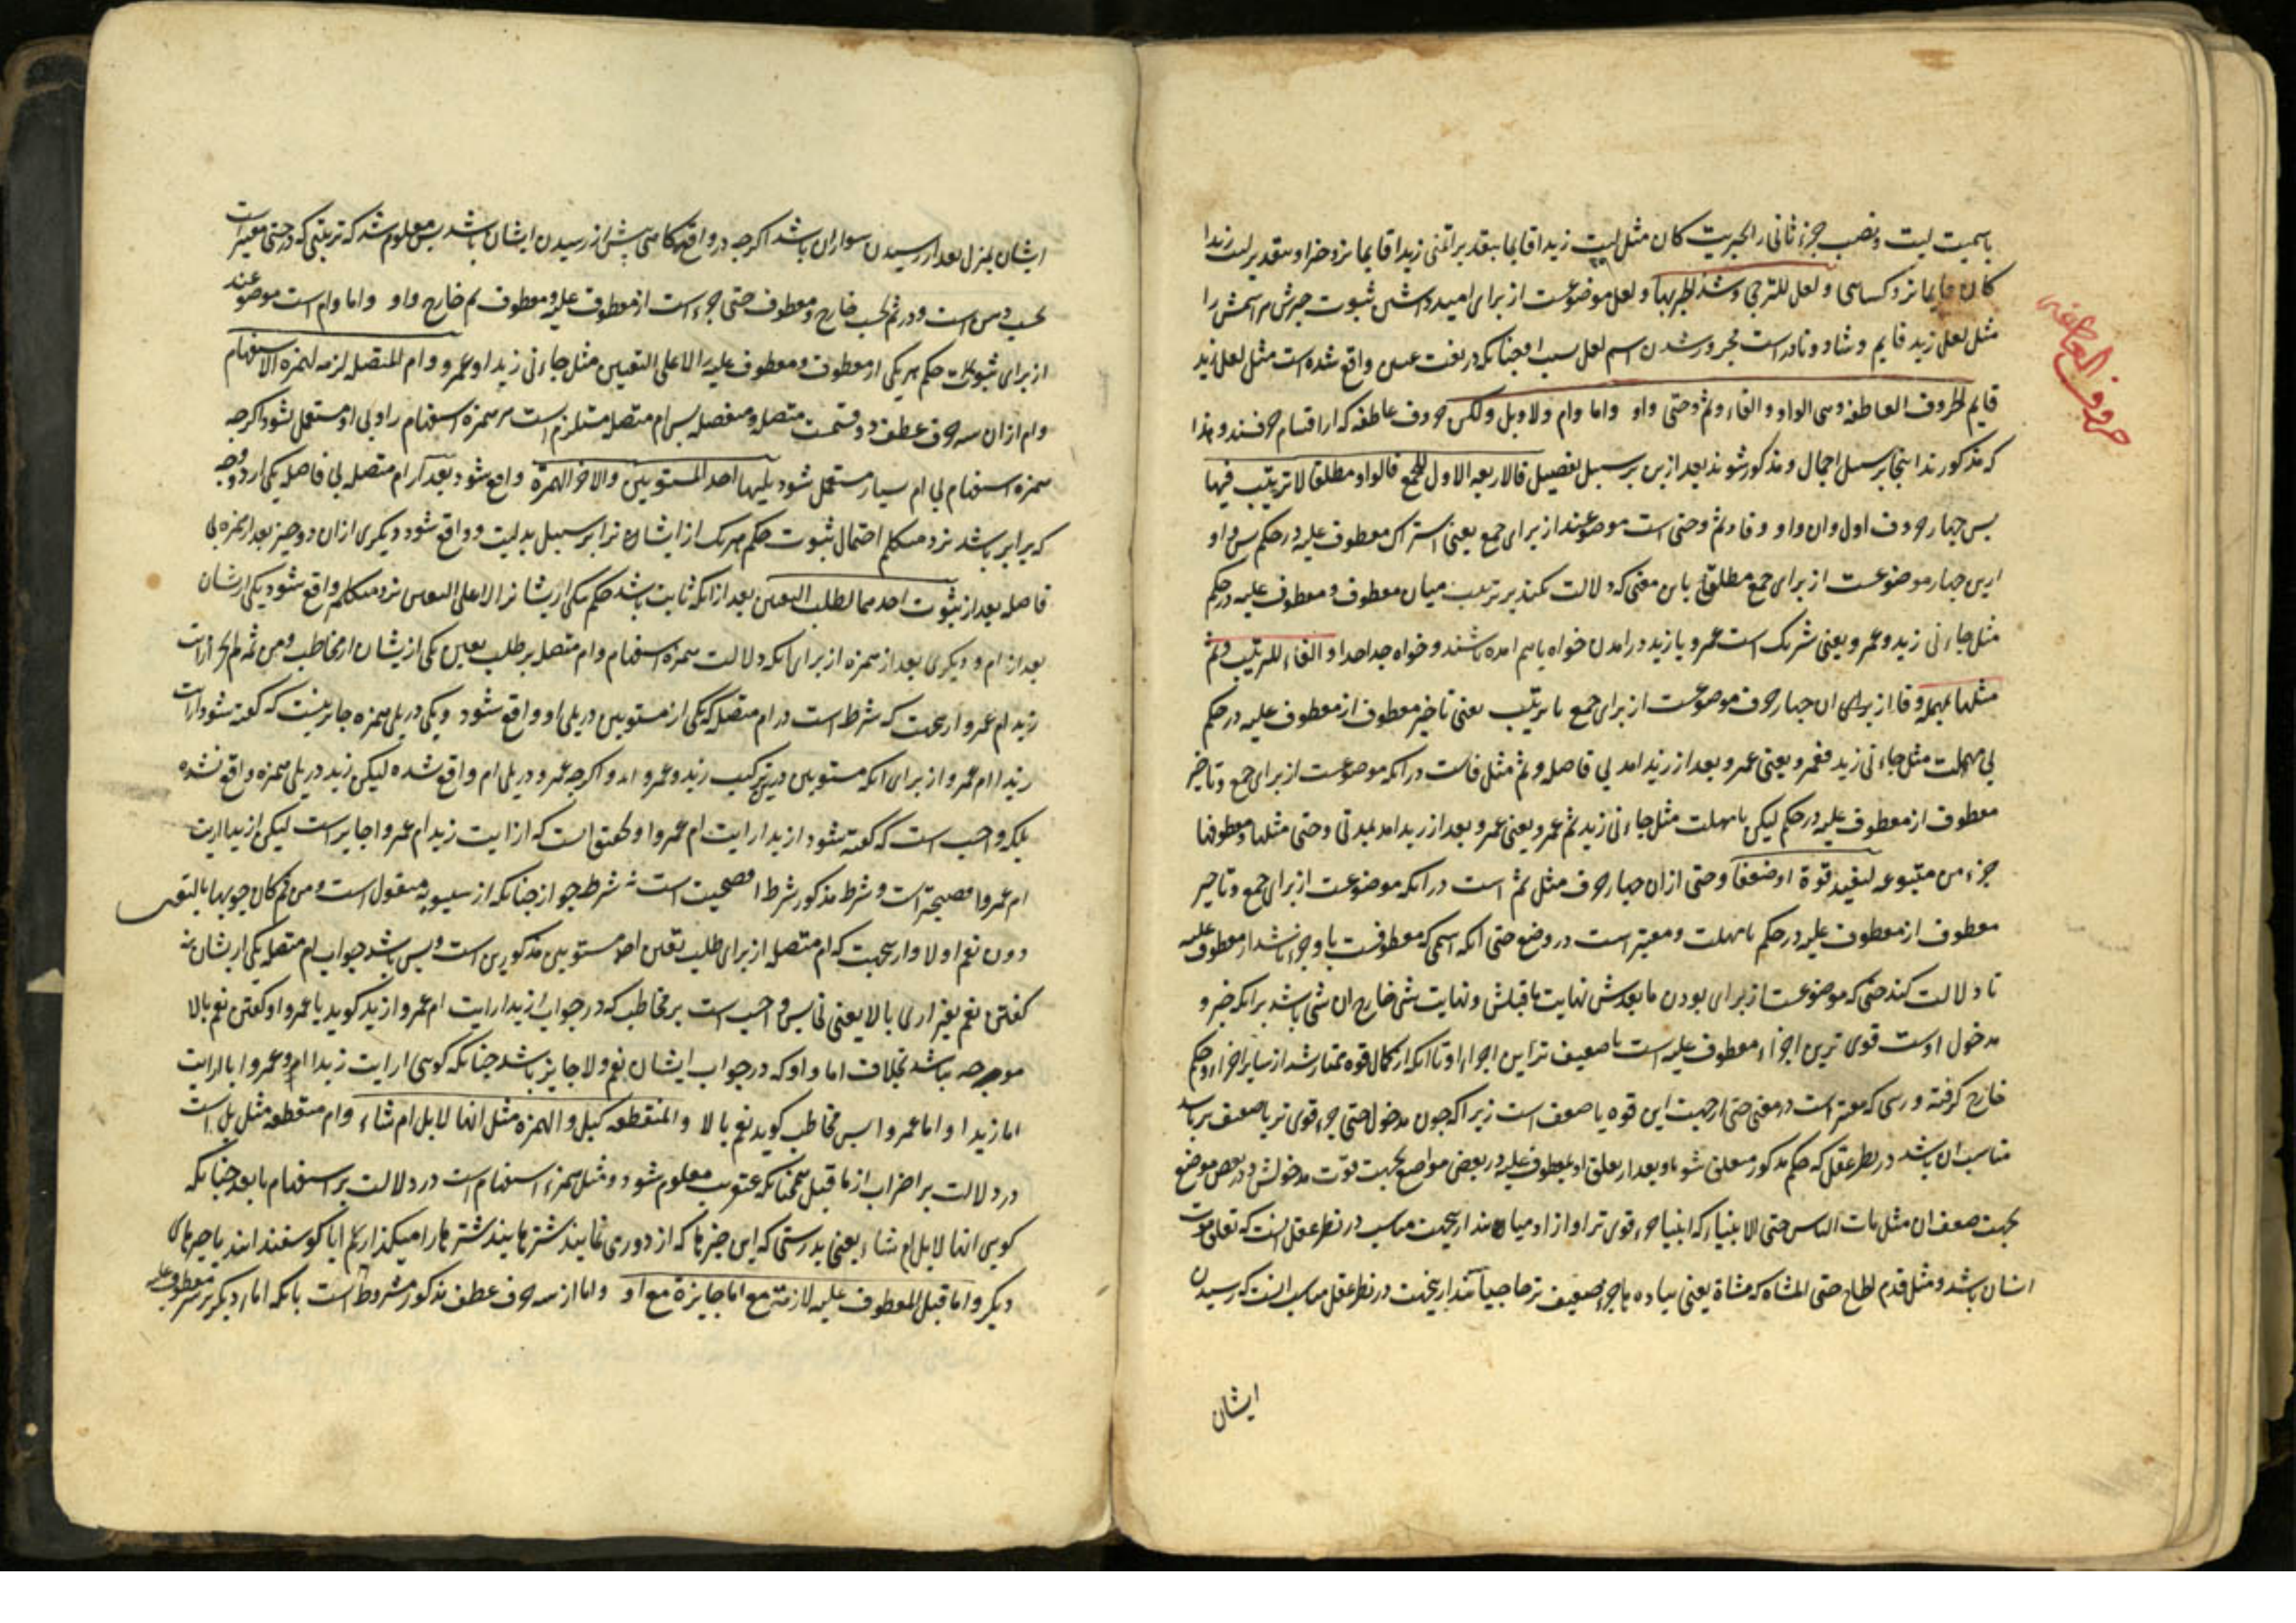 باسمیت لیت و نصب جزء ثانی را بخبریت کان مثل لیت زیدا قایما بتقدیر اتمنی زیدا قایما نزد فرا و بتقدیر لیت زیدا
کان قایما نزد کسایی و لعل للترجی و شذ الجر بها و لعل موضوعست از برای امید داشتن ثبوت خبرش مر اسمش را
مثل لعل زید قایم و شاذ و نادر است مجرور شدن اسم لعل بسبب او چنانکه در لغت عقیل واقع شده است مثل لعل زید
قایم الحروف العاطفة وهی الواو و الفاء و ثم و حتی و او و اما و ام و لا و بل و لکن حروف عاطفه که از اقسام حرفند و
که مذکورند اینجا بر سبیل اجمال و مذکور شوند بعد ازین بر سبیل تفصیل فالاربعة الاول للجمع فالواو مطلقا لا ترتیب فیها
پس چهار حروف اول و ان واو و فا و ثم و حتی است موضوعند از برای جمع یعنی اشتراک معطوف علیه در حکم پس واو
ازین چهار موضوعست از برای جمع مطلق باین معنی که دلالت نمیکند بر ترتیب میان معطوف و معطوف علیه در حکم
مثل جاءنی زید و عمرو یعنی شریک است عمرو با زید در امدن خواه باهم امده باشند و خواه جدا جدا و الفاء للترتیب و ثم
مثلها بمهلة و فا از برای ان چهار حرف موضوعست از برای جمع با ترتیب یعنی تاخیر معطوف از معطوف علیه در حکم
بی مهلت مثل جاءنی زید فعمرو یعنی عمرو بعد از زید امد بی فاصله و ثم مثل فاست در انکه موضوعست از برای جمع و تاخیر
معطوف از معطوف علیه در حکم لیکن با مهلت مثل جاءنی زید ثم عمرو یعنی عمرو بعد از زید امد بمدتی و حتی مثلها و معطوفها
جزء من متبوعه لیفید قوة او ضعفا و حتی از ان چهار حرف مثل ثم است در انکه موضوعست از برای جمع و تاخیر
معطوف از معطوف علیه در حکم با مهلت و معتبر است در وضع حتی انکه اسمی که معطوفست باو جزء باشد از معطوف علیه
تا دلالت کند حتی که موضوعست از برای بودن مابعدش نهایت ماقبلش و نهایت شی خارج ان شی باشد برانکه جزء و
مدخول اوست قوی ترین اجزاء معطوف علیه است یا ضعیف ترین اجزاء او تا انکه از کمال قوه ممتاز شد از سایر اجزاء و حکم
خارج گرفته و رسی که معتبر است در معنی حتی از جهت این قوه یا ضعف است زیرا که چون مدخول حتی جزء قوی تر یا ضعیف تر باشد
مناسب ان باشد در نظر عقل که حکم مذکور متعلق شود باو بعد از تعلق او بمعطوف علیه در بعض مواضع بجهت قوت مدخولش و در بعض موضع
بجهت ضعف ان مثل مات الناس حتی الانبیاء که انبیا جزء قوی تر او از ادمیان اند ازین جهت مناسب در نظر عقل انست که تعلق موت
ایشان باشد و مثل قدم الحاج حتی المشاة که مشاة یعنی پیاده ها جزء ضعیف تر حاجیانند ازین جهت در نظر عقل مناسب انست که رسیدن
ایشان
حروف العاطفه
ایشان بمنزل بعد از رسیدن سواران باشد اگرچه در واقع گاهی پیش از رسیدن ایشان باشد پس معلوم شد که ترتیبی که در حتی معتبر است
بحسب ذهن است و در ثم بحسب خارج و معطوف حتی جزء است از معطوف علیه و معطوف ثم خارج و او و اما و ام است موضوعند
از برای ثبوت حکم هر یکی از معطوف و معطوف علیه الا علی التعیین مثل جاءنی زید او عمرو و ام المتصلة لازمة لهمزة الاستفهام
و ام از ان سه حرف عطف دو قسمت متصله و منفصله پس ام متصله مستلزم است مر همزه استفهام را و بی او مستعمل نشود اگرچه
همزه استفهام بی ام بسیار مستعمل شود یلیها احد المستویین و الاخر الهمزة و واقع شود بعد از ام متصله بی فاصله یکی از دو چیز
که برابر باشد نزد متکلم احتمال ثبوت حکم هریک از ایشان بر سبیل بدلیت و واقع شود دیگری ازان دو چیز بعد از همزه بی
فاصله بعد از ثبوت احدهما لطلب التعیین بعد از انکه ثابت باشد حکم یکی از ایشان لا علی التعیین نزد متکلم واقع شود یکی از ایشان
بعد از ام و دیگری بعد از همزه از برای انکه دلالت همزه استفهام و ام متصل بر طلب تعیین یکی از ایشان از مخاطب و من ثم لم یجز ارایت
زیدا ام عمروا و ازین جهت که شرط است در ام متصل که یکی از مستویین در پی او واقع شود و یکی در پی همزه جایز نیست که گفته شود ارایت
زیدا ام عمروا از برای انکه مستویین درین ترکیب زید و عمرو اند و اگرچه عمرو در پی ام واقع شده لیکن زید در پی همزه واقع نشده
بلکه واجب است که گفته شود ازیدا رایت ام عمروا و است که ارایت زیدا ام عمروا جایز است لیکن ازیدا رایت
ام عمروا فصیحتر است و شرط مذکور شرط افصحیت است نه شرط جواز چنانکه از سیبویه منقول است و من ثم کان جوابها بالتعیین
دون نعم او لا و ازین جهت که ام متصله از برای طلب تعیین احد مستویین مذکورین است پس باشد جواب ام متصله یکی از ایشان نه
گفتن نعم یعنی اری یا لا یعنی نی پس واجب است بر مخاطب که در جواب ازیدا رایت ام عمروا زید گوید یا عمرو و گفتن نعم یا لا
موجه نباشد بخلاف اما و او که در جواب ایشان نعم و لا جایز باشد چنانکه گویی ارایت زیدا او عمروا یا ارایت
اما زیدا و اما عمروا پس مخاطب گوید نعم یا لا و المنقطعة کبل و الهمزة مثل انها لابل ام شاء و ام منقطعه مثل بل است
در دلالت بر اضراب از ماقبل همچنانکه عنقریب معلوم شود و مثل همزه استفهام است در دلالت بر استفهام مابعد چنانکه
گویی انها لابل ام شاء یعنی بدرستی که این چیزها که از دوری نمایند شترهایند شترها را میگذاریم ایا گوسفندانند یا چیزهای
دیگر و اما قبل المعطوف علیه لازمة مع اما جایزة مع او و اما از سه حرف عطف مذکور مشروط است بانکه اما دیگر بر سر معطوف علیه